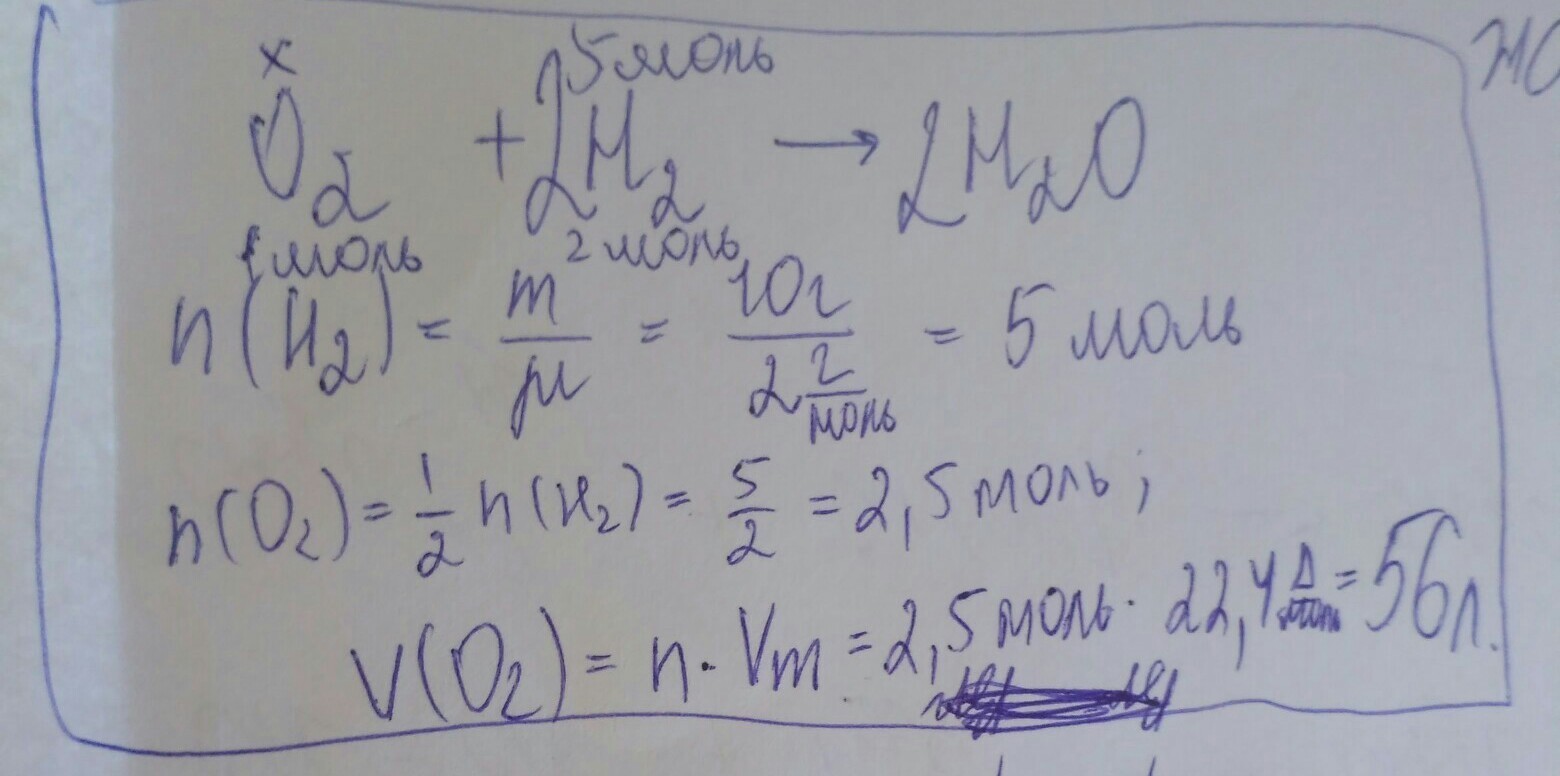 x 5 моль
O₂ + 2H₂ → 2H₂O
1 моль 2 моль
n(H₂) = m/μ = 10г/2 г/моль = 5 моль
n(O₂) = 1/2 n(H₂) = 5/2 = 2,5 моль;
V(O₂) = n · Vm = 2,5 моль · 22,4 л/моль = 56 л.